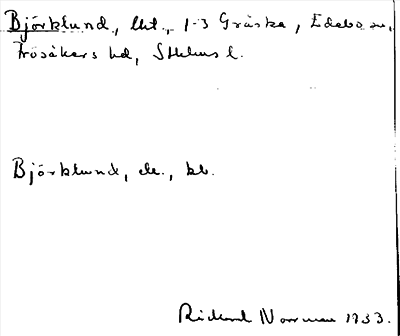 Björklund, lht., 1-3 Gräska, Edebo sn,
Frösåkers hd, Sthlms l.
Björklund, de., kb.
Rickard Norrman 1933.